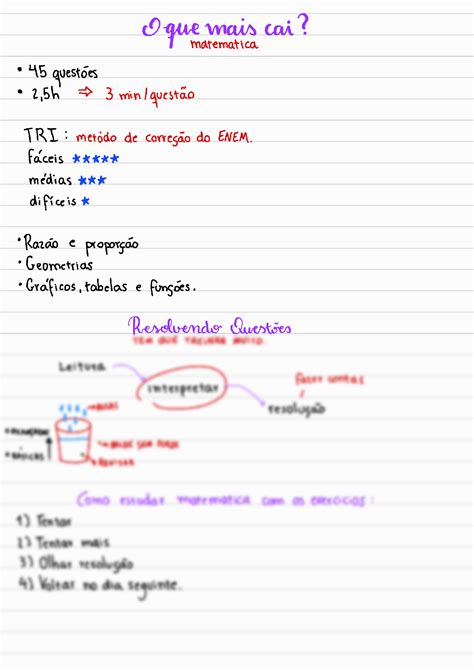 O que mais cai?
matematica
• 45 questões
• 2,5h ⇒ 3 min/questão
TRI: metodo de correção do ENEM.
fáceis ★★★★★
médias ★★★
difíceis ★
• Razão e proporção
• Geometrias
• Gráficos, tabelas e funções.
Resolvendo Questões
TEM QUE TREINAR MUITO.
Leitura
interpretar
fazer contas
resolução
REVISAR
Como estudar matematica com os exercicios:
1) Tentar
2) Tentar mais
3) Olhar resolução
4) Voltar no dia seguinte.